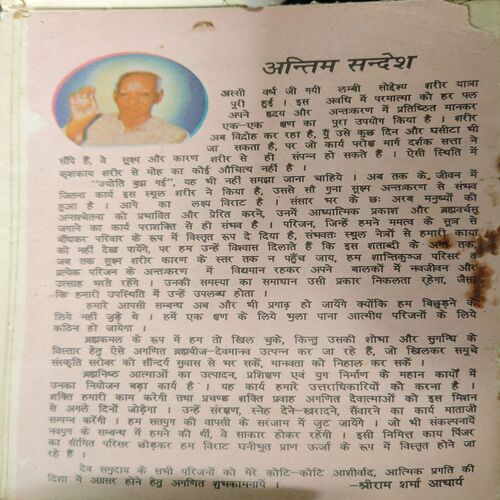 अन्तिम सन्देश
अस्सी वर्ष जी गयी लम्बी सोद्देश्य शरीर यात्रा
पूरी हुई । इस अवधि में परमात्मा को हर पल
अपने हृदय और अन्तःकरण में प्रतिष्ठित मानकर
एक-एक क्षण का पूरा उपयोग किया है । शरीर
अब विद्रोह कर रहा है, यूँ उसे कुछ दिन और घसीटा भी
जा सकता है, पर जो कार्य परोक्ष मार्ग दर्शक सत्ता ने
सौंपे हैं, वे सूक्ष्म और कारण शरीर से ही संपन्न हो सकते हैं । ऐसी स्थिति में
कृशकाय शरीर से मोह का कोई औचित्य नहीं है ।
"ज्योति बुझ गई", यह भी नहीं समझा जाना चाहिये । अब तक के जीवन में
जितना कार्य इस स्थूल शरीर ने किया है, उससे सौ गुना सूक्ष्म अन्तःकरण से संभव
हुआ है । आगे का लक्ष्य विराट है । संसार भर के छः अरब मनुष्यों की
अन्तश्चेतना को प्रभावित और प्रेरित करने, उनमें आध्यात्मिक प्रकाश और ब्रह्मवर्चस्
जगाने का कार्य पराशक्ति से ही संभव है । परिजन, जिन्हें हमने ममत्व के सूत्र से
बाँधकर परिवार के रूप में विस्तृत रूप दे दिया है, संभवतः स्थूल नेत्रों से हमारी काया
को नहीं देख पायेंगे, पर हम उन्हें विश्वास दिलाते हैं कि इस शताब्दी के अन्त तक,
जब तक सूक्ष्म शरीर कारण के स्तर तक न पहुँच जाय, हम शान्तिकुञ्ज परिसर व
प्रत्येक परिजन के अन्तःकरण में विद्यमान रहकर अपने बालकों में नवजीवन और
उत्साह भरते रहेंगे । उनकी समस्या का समाधान उसी प्रकार निकलता रहेगा, जैसा
कि हमारी उपस्थिति में उन्हें उपलब्ध होता ।
हमारे आपसी सम्बन्ध अब और भी प्रगाढ़ हो जायेंगे क्योंकि हम बिछुड़ने के
लिये नहीं जुड़े थे । हमें एक क्षण के लिये भुला पाना आत्मीय परिजनों के लिये
कठिन हो जायेगा ।
ब्रह्मकमल के रूप में हम तो खिल चुके, किन्तु उसकी शोभा और सुगन्धि के
विस्तार हेतु ऐसे अगणित ब्रह्मबीज-देवमानव उत्पन्न कर जा रहे हैं, जो खिलकर समूचे
संस्कृति सरोवर को सौंन्दर्य सुवास से भर सकें, मानवता को निहाल कर सकें ।
ब्रह्मनिष्ठ आत्माओं का उत्पादन, प्रशिक्षण एवं युग निर्माण के महान कार्यों में
उनका नियोजन बड़ा कार्य है । यह कार्य हमारे उत्तराधिकारियों को करना है ।
शक्ति हमारी काम करेगी तथा प्रचण्ड शक्ति प्रवाह अगणित देवात्माओं को इस मिशन
से अगले दिनों जोड़ेगा । उन्हें संरक्षण, स्नेह देने-खरादने, सँवारने का कार्य माताजी
सम्पन्न करेंगी । हम सतयुग की वापसी के सरंजाम में जुट जायेंगे । जो भी संकल्पनायें
नवयुग के सम्बन्ध में हमने की थीं, वे साकार होकर रहेंगी । इसी निमित्त काय पिंजर
का सीमित परिसर छोड़कर हम विराट घनीभूत प्राण ऊर्जा के रूप में विस्तृत होने जा
रहे हैं ।
देव समुदाय के सभी परिजनों को मेरे कोटि-कोटि आशीर्वाद, आत्मिक प्रगति की
दिशा में अग्रसर होने हेतु अगणित शुभकामनायें ।
-श्रीराम शर्मा आचार्य